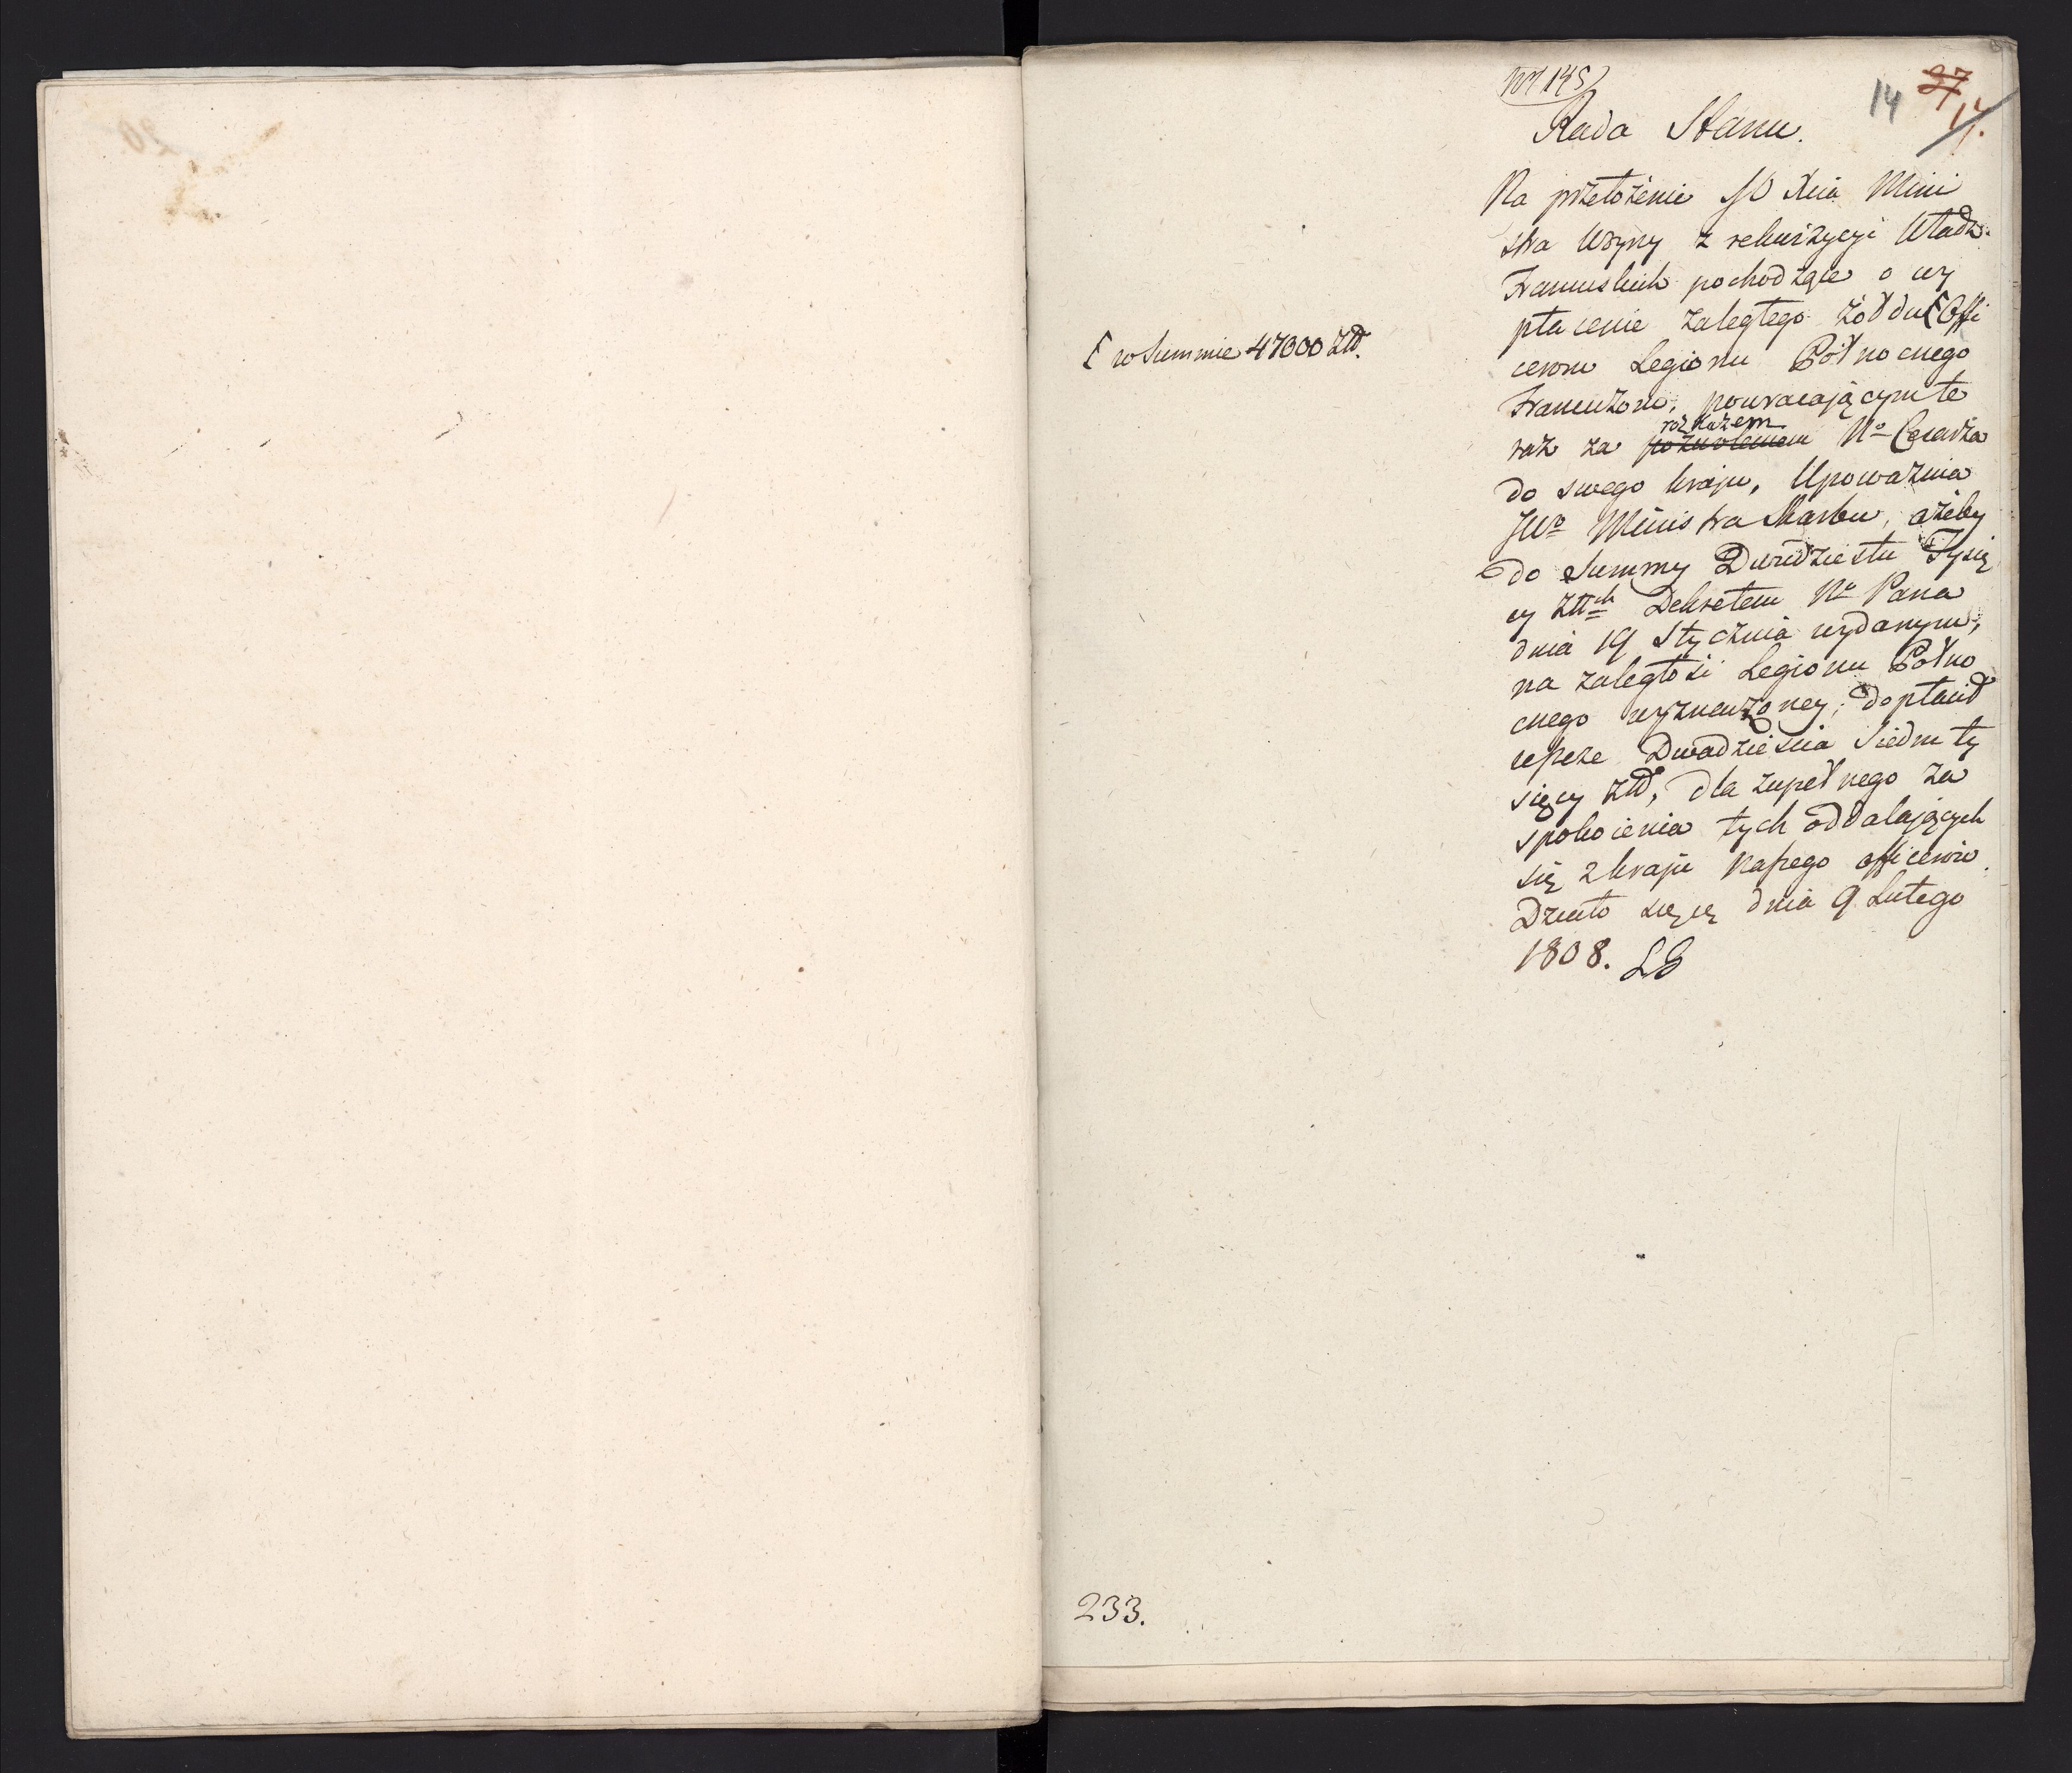 No 145
14 27 14.
Rada Stanu.
Na przełożenie JO Xcia Mini
stra Woyny z rekwizycyi Władz
Francuskich pochodzące o wy
płacenie zaległego żołdu [ Offi
cerom Legionu Północnego
[ w Summie 47000 Złł.
Francuzom, powracającym te
rozkazem
raz za pozwoleniem No Cesarza
do swego kraju, Upoważnia
JWo Ministra Skarbu, ażeby
do Summy Dwudziestu Tysię
cy Złłch Dekretem No Pana
dnia 19 Stycznia wydanym,
na zaległości Legionu Półno
cnego wyznaczoney; dopłacił
jeszcze Dwadzieścia Siedm ty
sięcy Złł, dla zupełnego za
spokoienia tych oddalaiących
się z kraju naszego officerów.
Działo się dnia 9 Lutego
1808. LB
233.